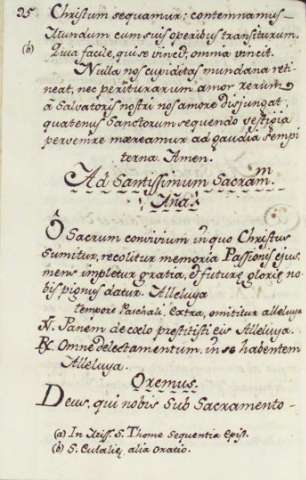 25 Christum sequamur; contemnamus
Mundum cum suis operibus transiturum.
(b) Qua facile, qui se vincit, omnia vincit.
Nulla nos cupiditas mundana reti-
neat, nec periturarum amor rerum
á Salvatoris nostri nos amore disjungat,
quatenus Sanctorum sequendo vestigia
pervenire mereamur ad gaudia sempi
terna Amen.
Ad Santissimum Sacramm.
Aña.
Ô Sacrum convivium in quo Christus
Sumitur, recolitur memoria Passionis ejus,
mens impletur gratia, et future glorie no-
bis pignus datur. Alleluya
tempore Paschali, extra, omititur alleluya
℣. Panem de cœlo prestitisti eis Alleluya.
℟. Omne delectamentum, in se habentem
Alleluya.
Oremus.
Deus, qui nobis Sub Sacramento-
(a) In Miss. S. Thome Sequentia Epist.
(b) S. Eulalie, alia oratio.